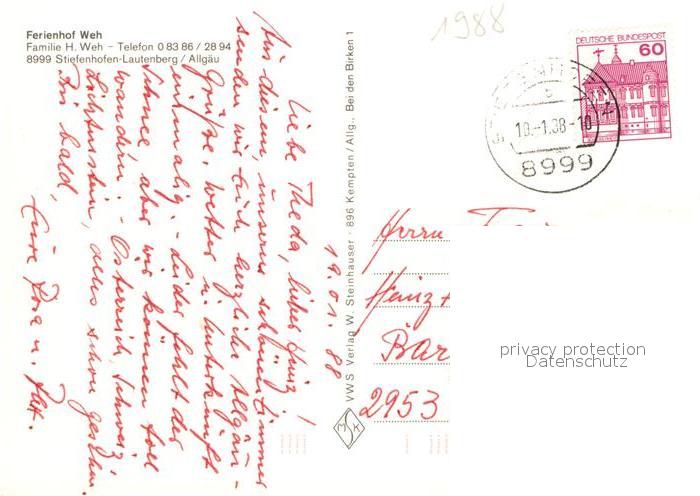 Ferienhof Weh
Familie H. Weh – Telefon 0 83 86 / 28 94
8999 Stiefenhofen-Lautenberg / Allgäu
19.01.88
Liebe Theda, lieber Heinz!
Aus diesem, unserem schönen Zimmer
senden wir Euch herzliche Allgäu-
Grüße. Wetter u. Unterkunft
einmalig. – leider fehlt der
Schnee aber wir können toll
wandern. – Österreich, Schweiz,
Lichtenstein, alles schon gesehen.
Bis bald,
Eure Rosa u.
VWS Verlag W. Steinhauser · 896 Kempten/Allg., Bei den Birken 1
M K
1988
DEUTSCHE BUNDESPOST
60
b
19.-1.88-10
8999
Herrn
Heinz
Bar
2953
privacy protection
Datenschutz